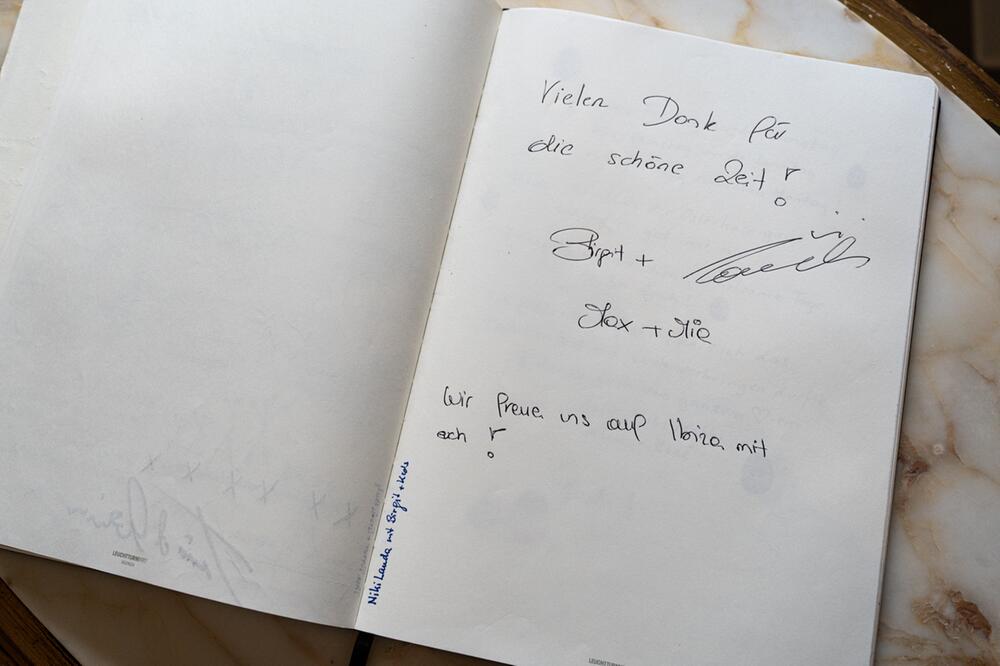 Vielen Dank für
die schöne Zeit!
Birgit +
Max + Mia
Wir freuen uns auf Ibiza mit
euch!
Niki Lauda mit Birgit + Kids
LEUCHTTURM1917
LEUCHTTURM1917